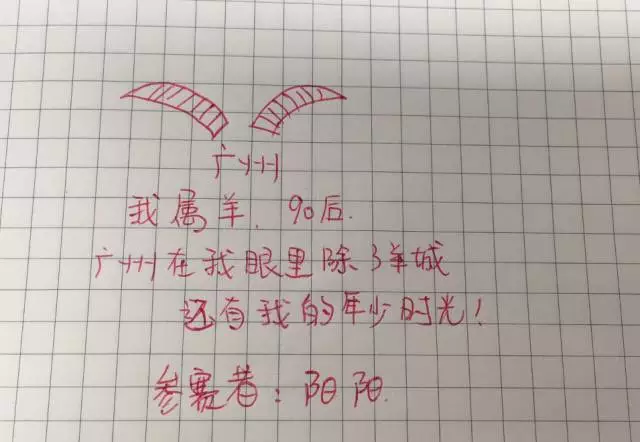 广州
我属羊. 90后.
广州在我眼里除了羊城
还有我的年少时光!
参赛者: 阳阳.